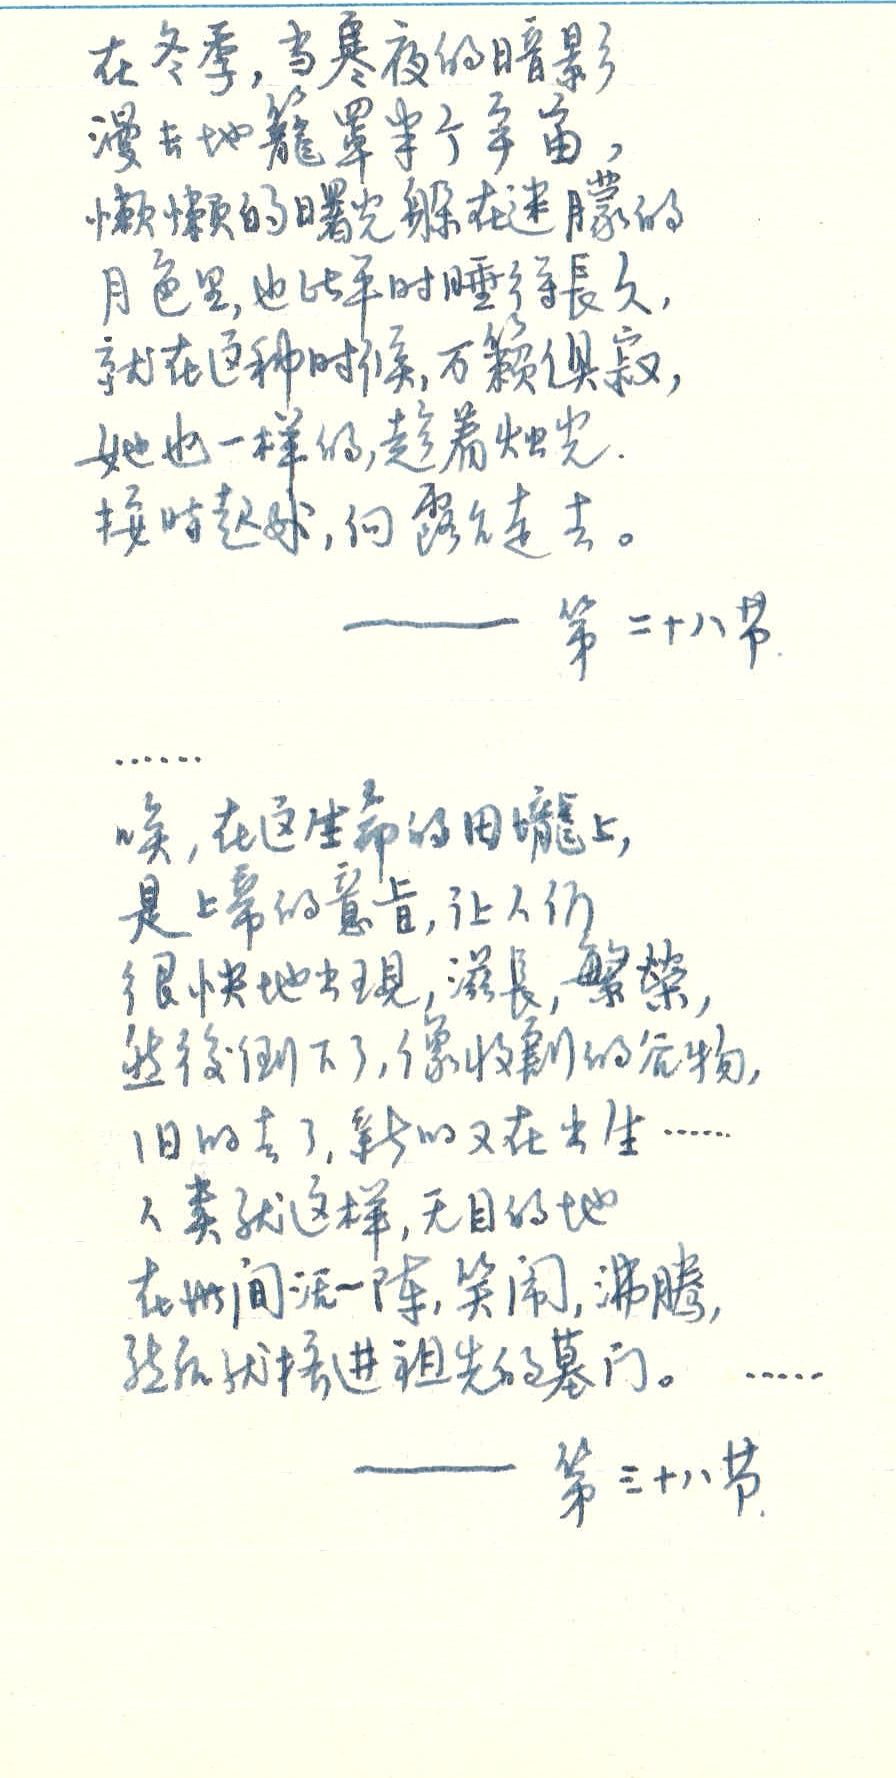 在冬季,当寒夜的暗影
漫长地籠罩半个宇宙,
懒懒的曙光躲在迷朦的
月色里,也比平时睡得長久,
就在这种时候,万籁俱寂,
她也一样的,趁着烛光.
按时起
,向
走去。
—— 第二十八节.
......
唉,在这生命的田壠上,
是上帝的意旨,让人们
很快地出現,滋長,繁榮,
然後倒下了,像收割的谷物,
旧的去了,新的又在出生......
人类就这样,无目的地
在世间活一阵,笑闹,沸腾,
然后就挤进祖先的墓门。 ......
—— 第三十八节.